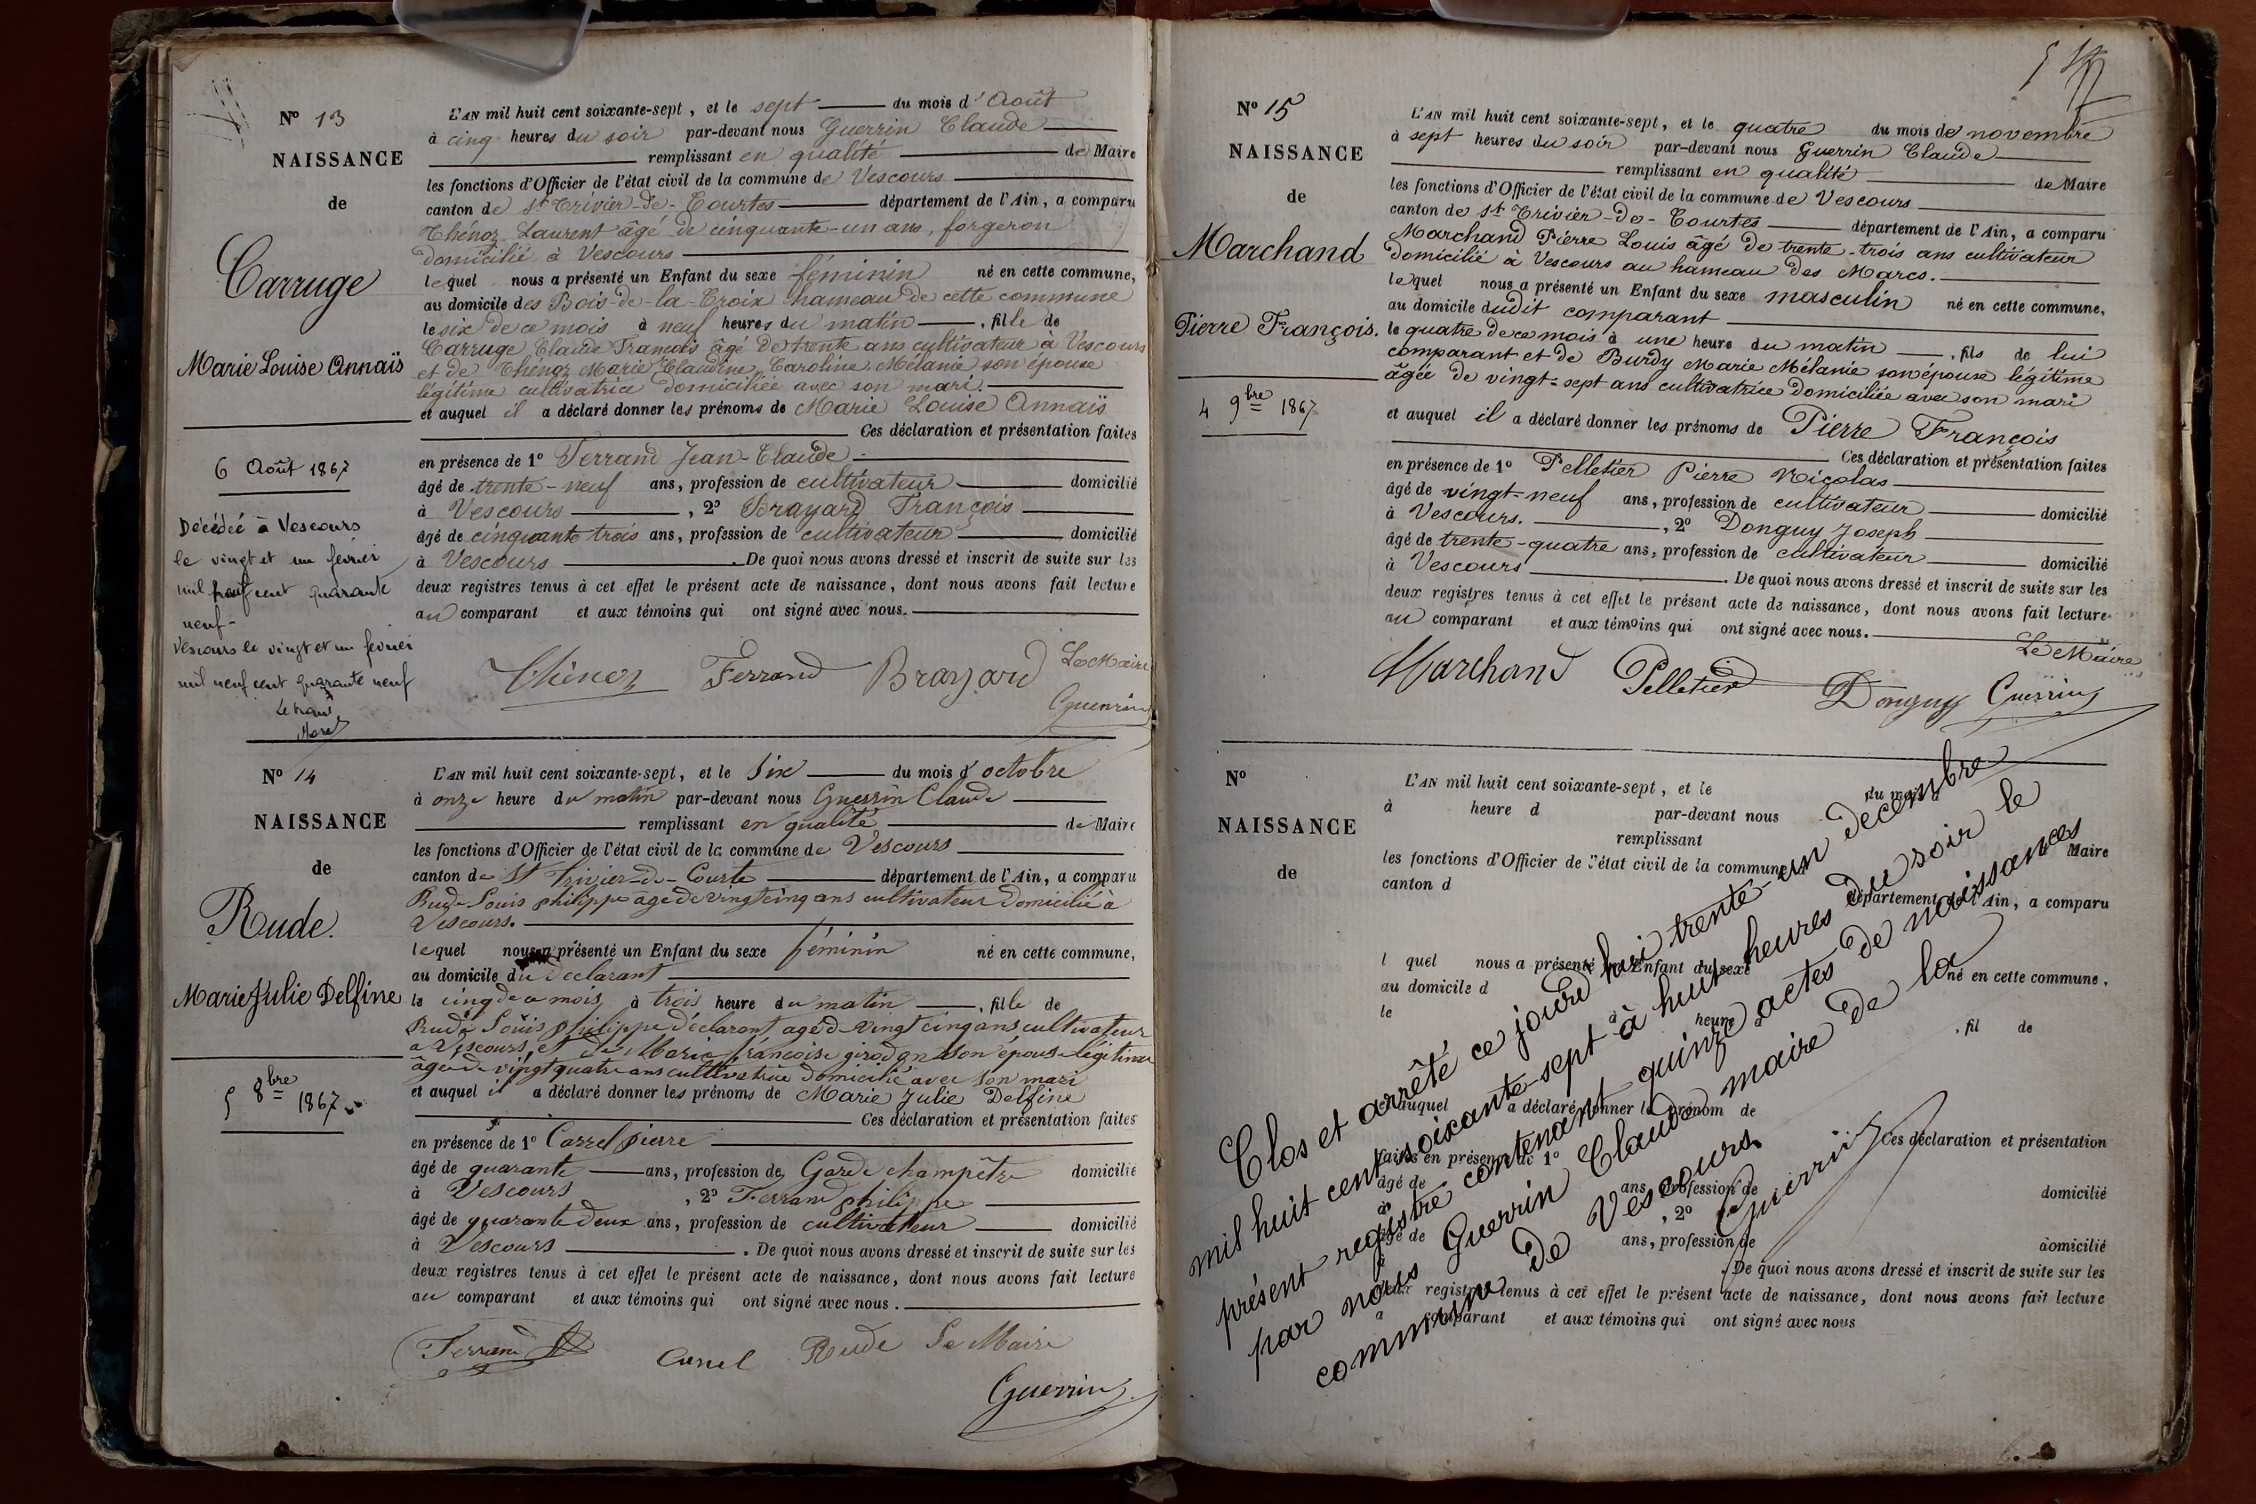 Nº 13
NAISSANCE
de
Carruge
Marie Louise Annaïs
6 Août 1867
Décédée à Vescours
le vingt et un fevrier
mil neuf cent quarante
neuf -
Vescours le vingt et un fevrier
mil neuf cent quarante neuf
L'AN mil huit cent soixante-sept, et le sept du mois d'Août
à cinq heures du soir par-devant nous Guerrin Claude
remplissant en qualité de Maire
les fonctions d'Officier de l'état civil de la commune de Vescours
canton de St Trivier-de-Courtes département de l'Ain, a comparu
Thénoz Laurent âgé de cinquante-un ans, forgeron
domicilié à Vescours
lequel nous a présenté un Enfant du sexe féminin né en cette commune,
au domicile des Bois-de-la-Croix hameau de cette commune
le six de ce mois à neuf heures du matin , fille de
Carruge Claude François âgé de trente ans cultivateur à Vescours
et de Thénoz Marie Claudine Caroline Mélanie son épouse
légitime cultivatrice domiciliée avec son mari.
et auquel il a déclaré donner les prénoms de Marie Louise Annaïs
Ces déclaration et présentation faites
en présence de 1º Ferrand Jean-Claude
âgé de trente-neuf ans, profession de cultivateur domicilié
à Vescours , 2º Brayard François
âgé de cinquante trois ans, profession de cultivateur domicilié
à Vescours . De quoi nous avons dressé et inscrit de suite sur les
deux registres tenus à cet effet le présent acte de naissance, dont nous avons fait lecture
au comparant et aux témoins qui ont signé avec nous.
Thénoz Ferrand Brayard Le Maire
Guerrin
Nº 14
NAISSANCE
de
Rude.
Marie Julie Delfine
5 8bre 1867
L'AN mil huit cent soixante-sept, et le six du mois d'octobre
à onze heure du matin par-devant nous Guerrin Claude
remplissant en qualité de Maire
les fonctions d'Officier de l'état civil de la commune de Vescours
canton de St Trivier-de-Courte département de l'Ain, a comparu
Rude Louis philippe âgé de vingt cinq ans cultivateur domicilié à
Vescours.
lequel nous a présenté un Enfant du sexe féminin né en cette commune,
au domicile du déclarant
le cinq de ce mois, à trois heure du matin , fille de
Rude Louis philippe déclarant agé de vingt cinq ans cultivateur
a Vescours, et de Marie françoise girodon son épouse légitime
âgée de vingt quatre ans cultivatrice domicilié avec son mari
et auquel il a déclaré donner les prénoms de Marie Julie Delfine
Ces déclaration et présentation faites
en présence de 1º Carrel pierre
âgé de quarante ans, profession de Garde champêtre domicilié
à Vescours , 2º Ferrand philippe
âgé de quarante deux ans, profession de cultivateur domicilié
à Vescours . De quoi nous avons dressé et inscrit de suite sur les
deux registres tenus à cet effet le présent acte de naissance, dont nous avons fait lecture
au comparant et aux témoins qui ont signé avec nous.
Ferrand Carrel Rude Le Maire
Guerrin
Nº 15
NAISSANCE
de
Marchand
Pierre François.
4 9bre 1867
L'AN mil huit cent soixante-sept, et le quatre du mois de novembre
à sept heures du soir par-devant nous Guerrin Claude
remplissant en qualité de Maire
les fonctions d'Officier de l'état civil de la commune de Vescours
canton de St Trivier-de-Courtes département de l'Ain, a comparu
Marchand Pierre Louis âgé de trente-trois ans cultivateur
domicilié à Vescours au hameau des Marcs.
lequel nous a présenté un Enfant du sexe masculin né en cette commune,
au domicile dudit comparant
le quatre de ce mois à une heure du matin , fils de lui
comparant et de Burdy Marie Mélanie son épouse légitime
âgée de vingt-sept ans cultivatrice domiciliée avec son mari
et auquel il a déclaré donner les prénoms de Pierre François
Ces déclaration et présentation faites
en présence de 1º Pelletier Pierre Nicolas
âgé de vingt-neuf ans, profession de cultivateur domicilié
à Vescours. , 2º Donguy Joseph
âgé de trente-quatre ans, profession de cultivateur domicilié
à Vescours . De quoi nous avons dressé et inscrit de suite sur les
deux registres tenus à cet effet le présent acte de naissance, dont nous avons fait lecture
au comparant et aux témoins qui ont signé avec nous.
Le Maire
Marchand Pelletier Donguy Guerrin
Nº
NAISSANCE
de
L'AN mil huit cent soixante-sept, et le du mois d
à heure d par-devant nous
remplissant
les fonctions d'Officier de l'état civil de la commune Maire
canton d département de l'Ain, a comparu
l quel nous a présenté un Enfant du sexe né en cette commune,
au domicile d
le à heure d , fil de
et auquel a déclaré donner le prénom de
Ces déclaration et présentation
faites en présence de 1º
âgé de ans, profession de domicilié
à , 2º
âgé de ans, profession de domicilié
à . De quoi nous avons dressé et inscrit de suite sur les
deux registres tenus à cet effet le présent acte de naissance, dont nous avons fait lecture
a comparant et aux témoins qui ont signé avec nous
Clos et arrêté ce jourd'hui trente-un décembre
mil huit cent soixante-sept à huit heures du soir le
présent registre contenant quinze actes de naissances
par nous Guerrin Claude maire de la
commune de Vescours.
Guerrin